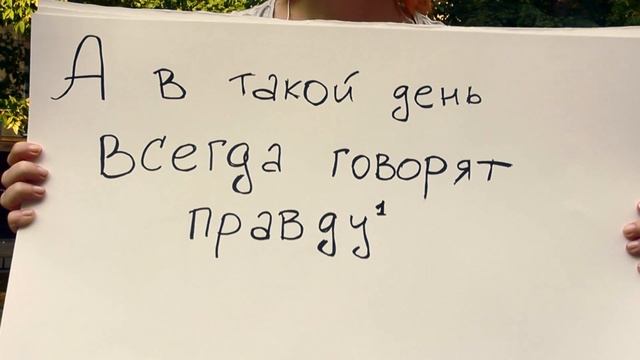 А в такой день
всегда говорят
правду¹